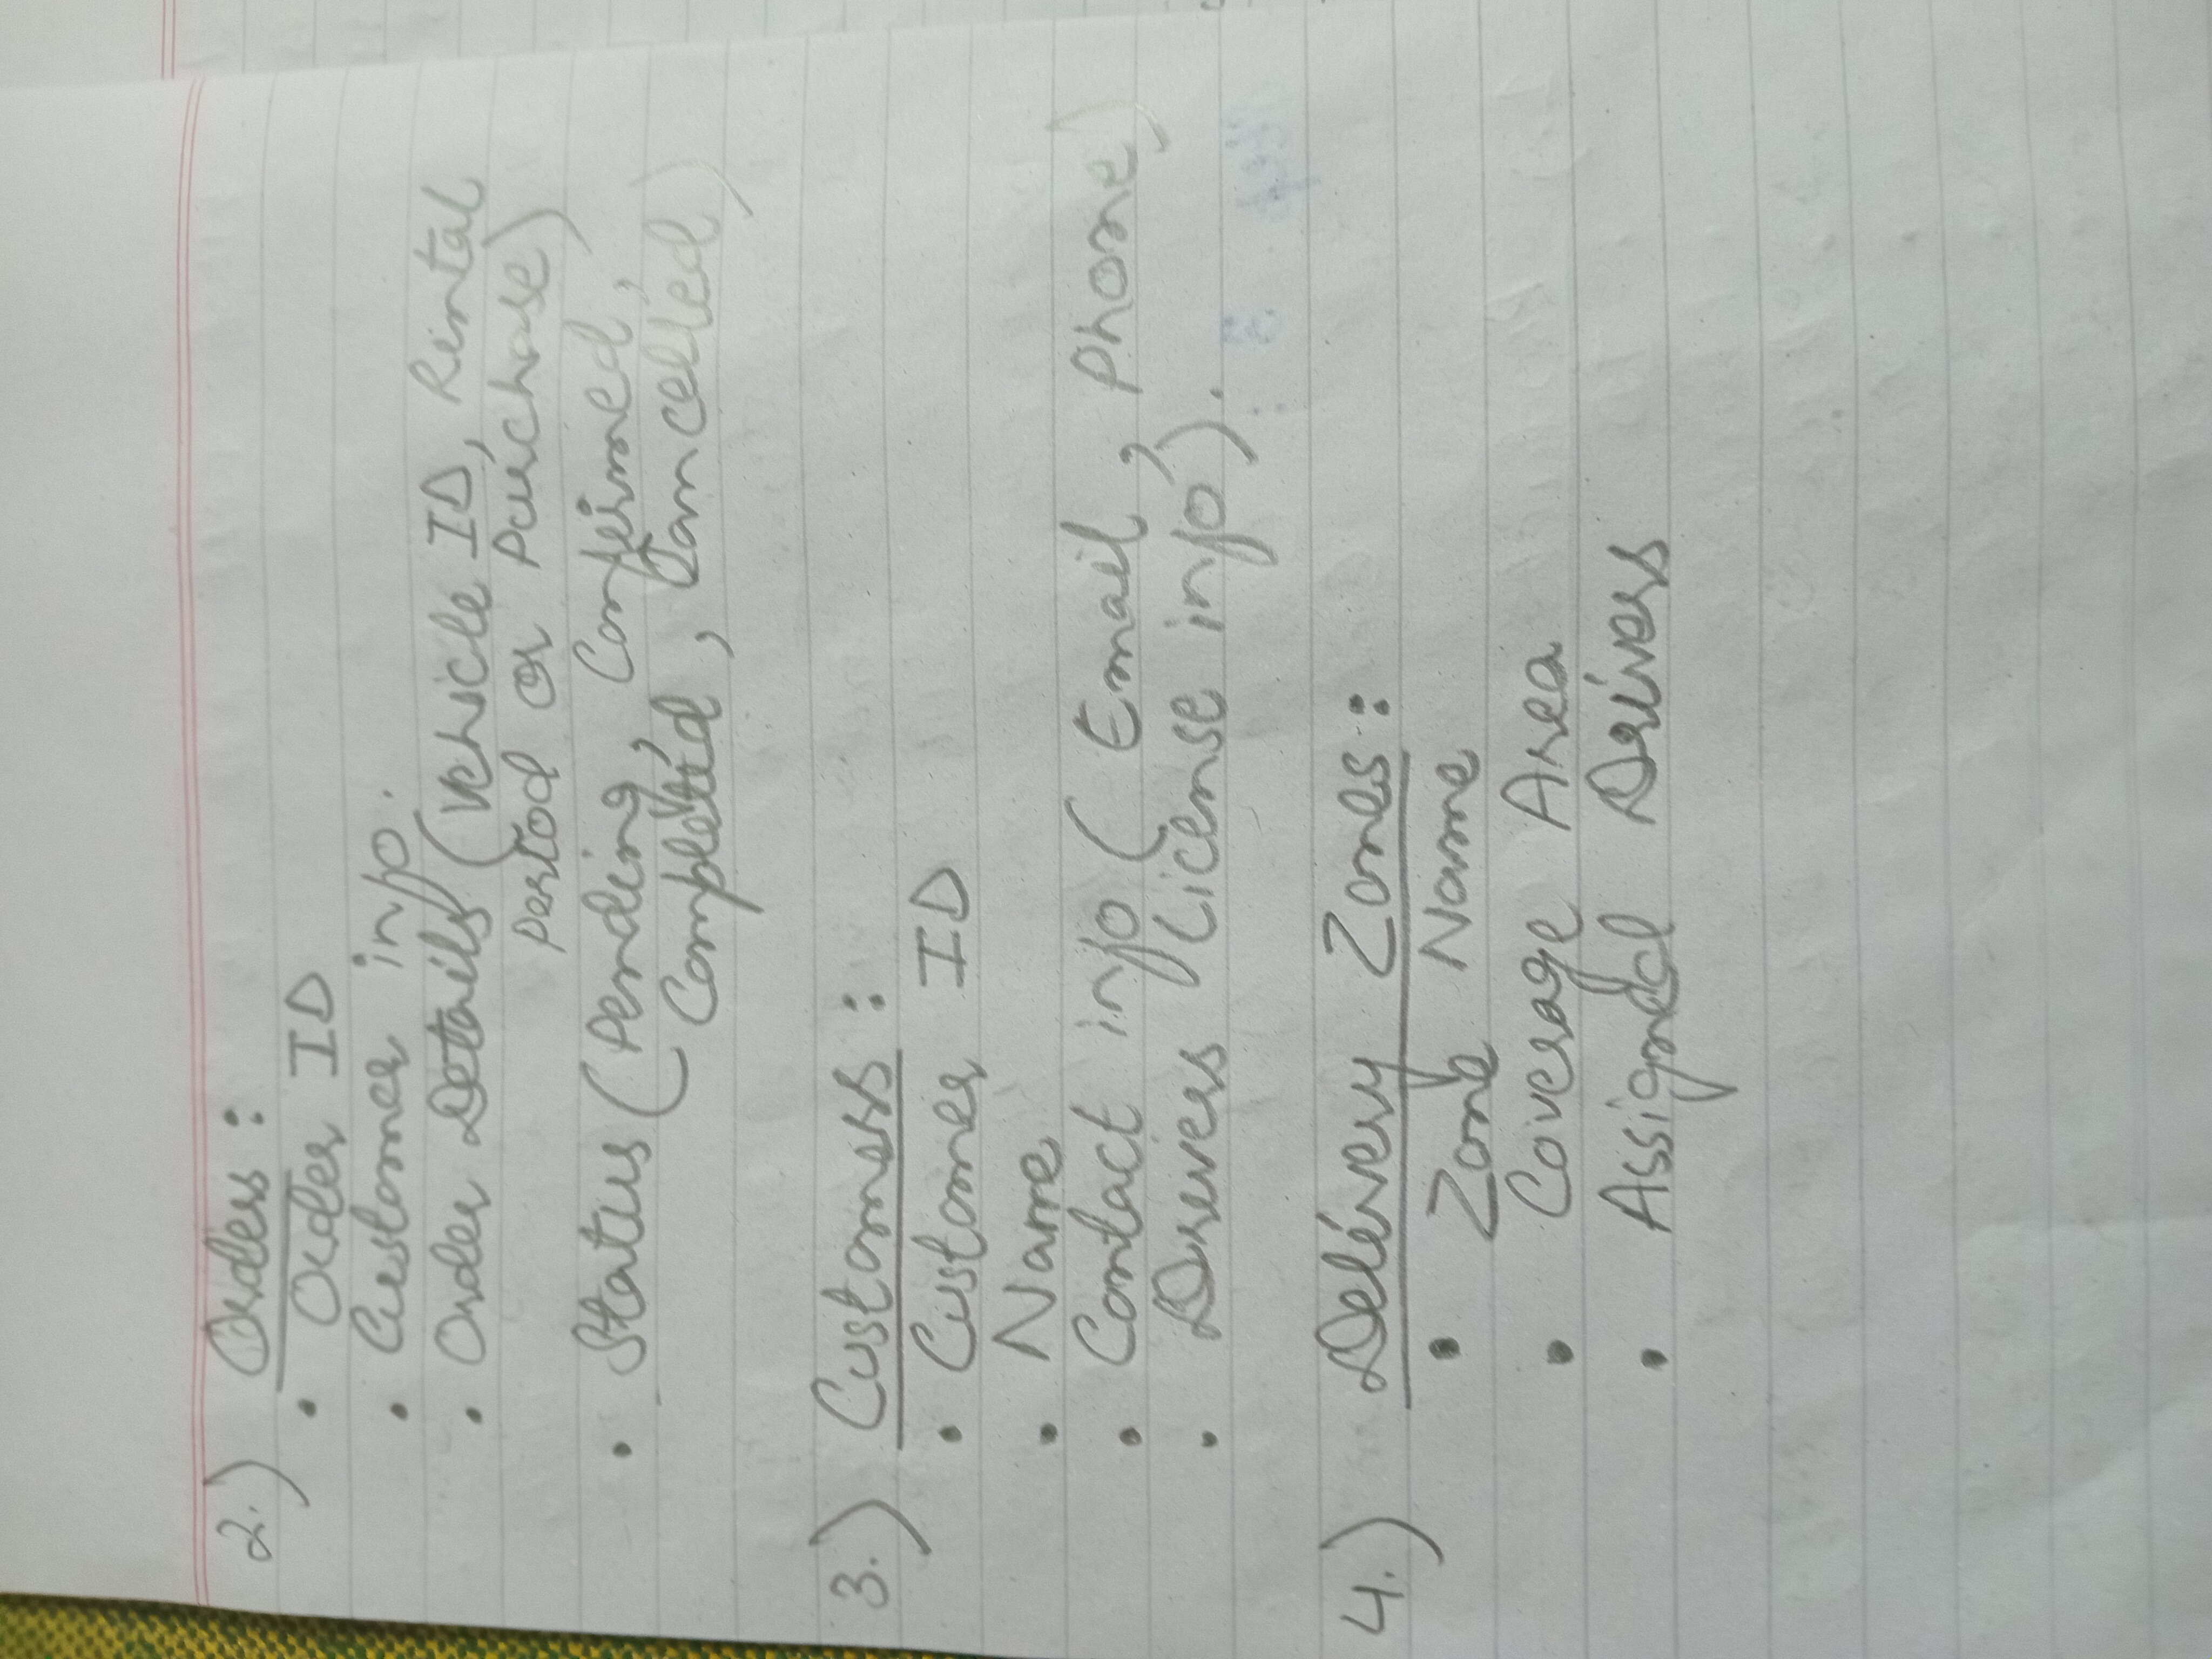 2.) Orders :
• Order ID
• Customer info.
• Order Details (Vehicle ID, Rental
Period or Purchase)
• Status (Pending, Confirmed,
Completed, Cancelled)
3.) Customers :
• Customer ID
• Name
• Contact info ( Email, Phone)
• Drivers License info).
4.) Delivery Zones :
• Zone Name
• Coverage Area
• Assigned Drivers